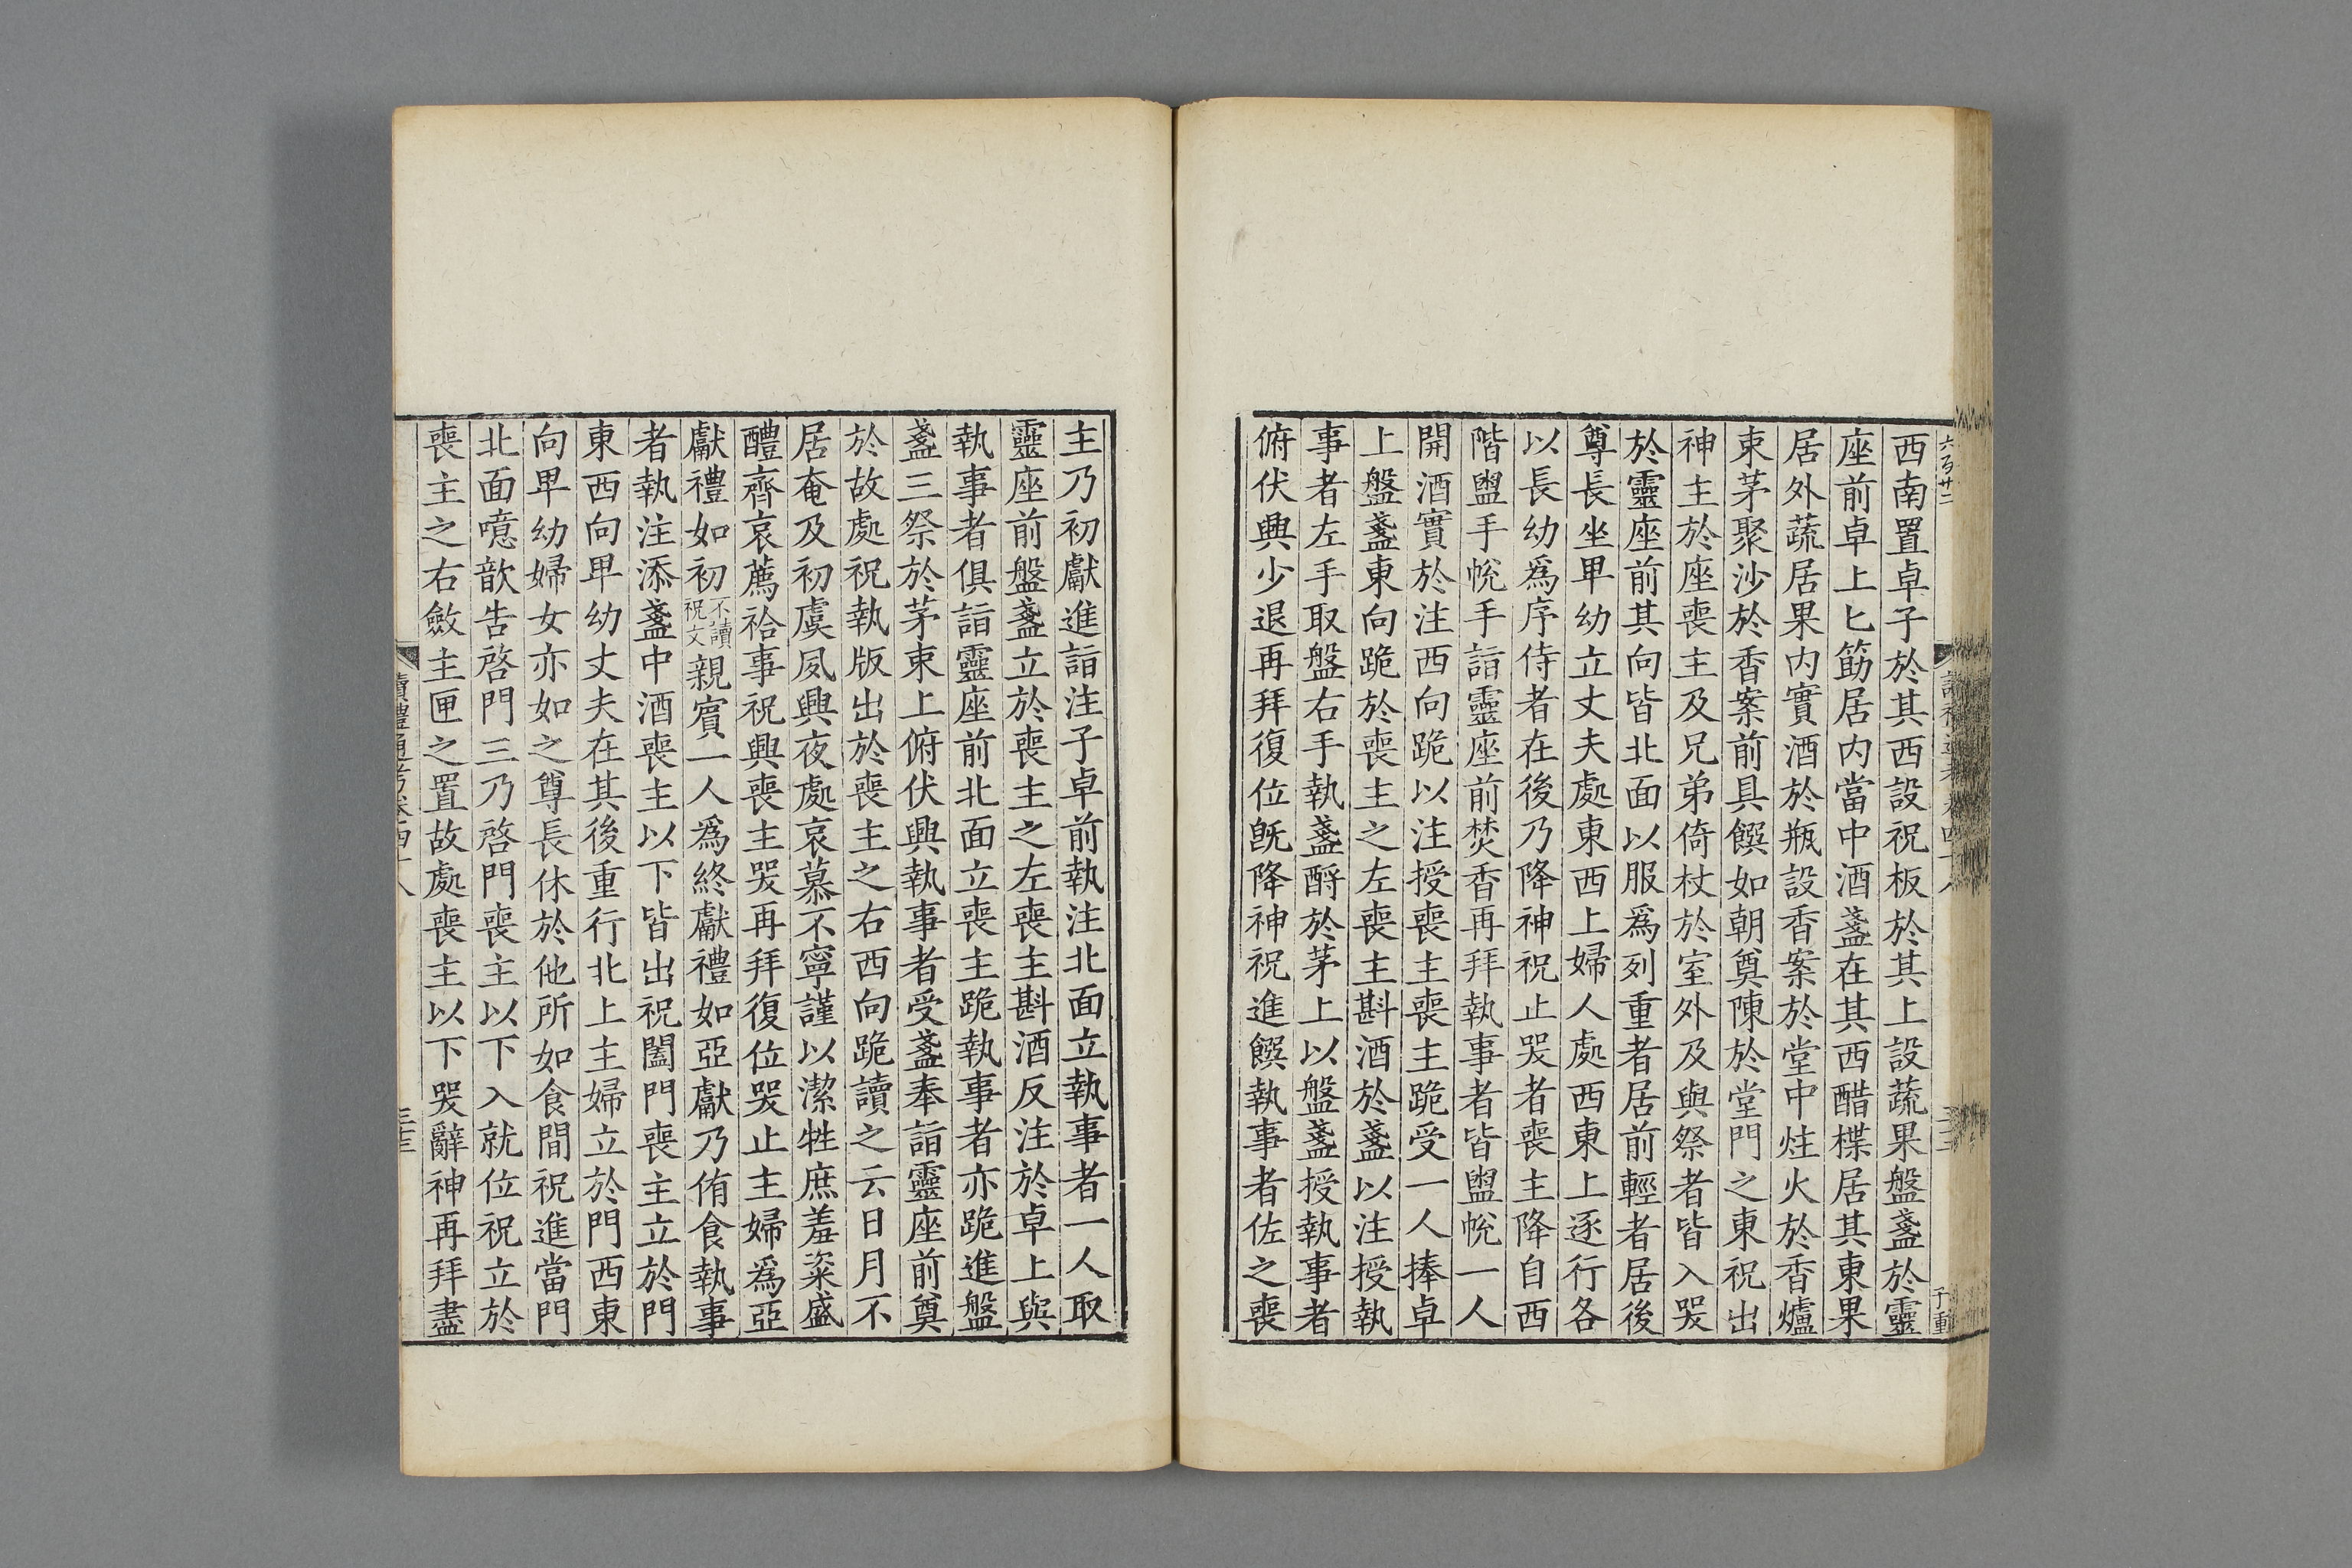 西南置卓子於其西設祝板於其上設蔬果盤盞於靈
座前卓上匕筯居内當中酒盞在其西醋楪居其東果
居外蔬居果内實酒於瓶設香案於堂中炷火於香爐
束茅聚沙於香案前具饌如朝奠陳於堂門之東祝出
神主於座喪主及兄弟倚杖於室外及與祭者皆入哭
於靈座前其向皆北面以服爲列重者居前輕者居後
尊長坐卑幼立丈夫處東西上婦人處西東上逐行各
以長幼爲序侍者在後乃降神祝止哭者喪主降自西
階盥手帨手詣靈座前焚香再拜執事者皆盥帨一人
開酒實於注西向跪以注授喪主喪主跪受一人捧卓
上盤盞東向跪於喪主之左喪主斟酒於盞以注授執
事者左手取盤右手執盞酹於茅上以盤盞授執事者
俯伏興少退再拜復位旣降神祝進饌執事者佐之喪
子重
主乃初獻進詣注子卓前執注北面立執事者一人取
靈座前盤盞立於喪主之左喪主斟酒反注於卓上與
執事者俱詣靈座前北面立喪主跪執事者亦跪進盤
盞三祭於茅束上俯伏興執事者受盞奉詣靈座前奠
於故處祝執版出於喪主之右西向跪讀之云日月不
居奄及初虞夙興夜處哀慕不寧謹以潔牲庶羞粢盛
醴齊哀薦祫事祝興喪主哭再拜復位哭止主婦爲亞
獻禮如初不讀祝文親賓一人爲終獻禮如亞獻乃侑食執事
者執注添盞中酒喪主以下皆出祝闔門喪主立於門
東西向卑幼丈夫在其後重行北上主婦立於門西東
向卑幼婦女亦如之尊長休於他所如食間祝進當門
北面噫歆告啓門三乃啓門喪主以下入就位祝立於
喪主之右斂主匣之置故處喪主以下哭辭神再拜盡
讀禮通考卷四十八